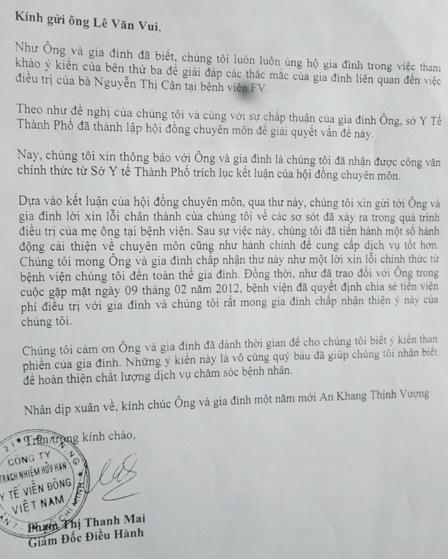 Kính gửi ông Lê Văn Vui,
Như Ông và gia đình đã biết, chúng tôi luôn luôn ủng hộ gia đình trong việc tham
khảo ý kiến của bên thứ ba để giải đáp các thắc mắc của gia đình liên quan đến việc
điều trị của bà Nguyễn Thị Cân tại bệnh viện FV.
Theo như đề nghị của chúng tôi và cùng với sự chấp thuận của gia đình Ông, sở Y Tế
Thành Phố đã thành lập hội đồng chuyên môn để giải quyết vấn đề này.
Nay, chúng tôi xin thông báo với Ông và gia đình là chúng tôi đã nhận được công văn
chính thức từ Sở Y tế Thành Phố trích lục kết luận của hội đồng chuyên môn.
Dựa vào kết luận của hội đồng chuyên môn, qua thư này, chúng tôi xin gửi tới Ông và
gia đình lời xin lỗi chân thành của chúng tôi về các sơ sót đã xảy ra trong quá trình
điều trị của mẹ ông tại bệnh viện. Sau sự việc này, chúng tôi đã tiến hành một số hành
động cải thiện về chuyên môn cũng như hành chính để cung cấp dịch vụ tốt hơn.
Chúng tôi mong Ông và gia đình chấp nhận thư này như một lời xin lỗi chính thức từ
bệnh viện chúng tôi đến toàn thể gia đình. Đồng thời, như đã trao đổi với Ông trong
cuộc gặp mặt ngày 09 tháng 02 năm 2012, bệnh viện đã quyết định chia sẻ tiền viện
phí điều trị với gia đình và chúng tôi rất mong gia đình chấp nhận thiện ý này của
chúng tôi.
Chúng tôi cảm ơn Ông và gia đình đã dành thời gian để cho chúng tôi biết ý kiến than
phiền của gia đình. Những ý kiến này là vô cùng quý báu đã giúp chúng tôi nhận biết
để hoàn thiện chất lượng dịch vụ chăm sóc bệnh nhân.
Nhân dịp xuân về, kính chúc Ông và gia đình một năm mới An Khang Thịnh Vượng
Trân trọng kính chào,
CÔNG TY
TRÁCH NHIỆM HỮU HẠN
Y TẾ VIỄN ĐÔNG
VIỆT NAM
Phạm Thị Thanh Mai
Giám Đốc Điều Hành